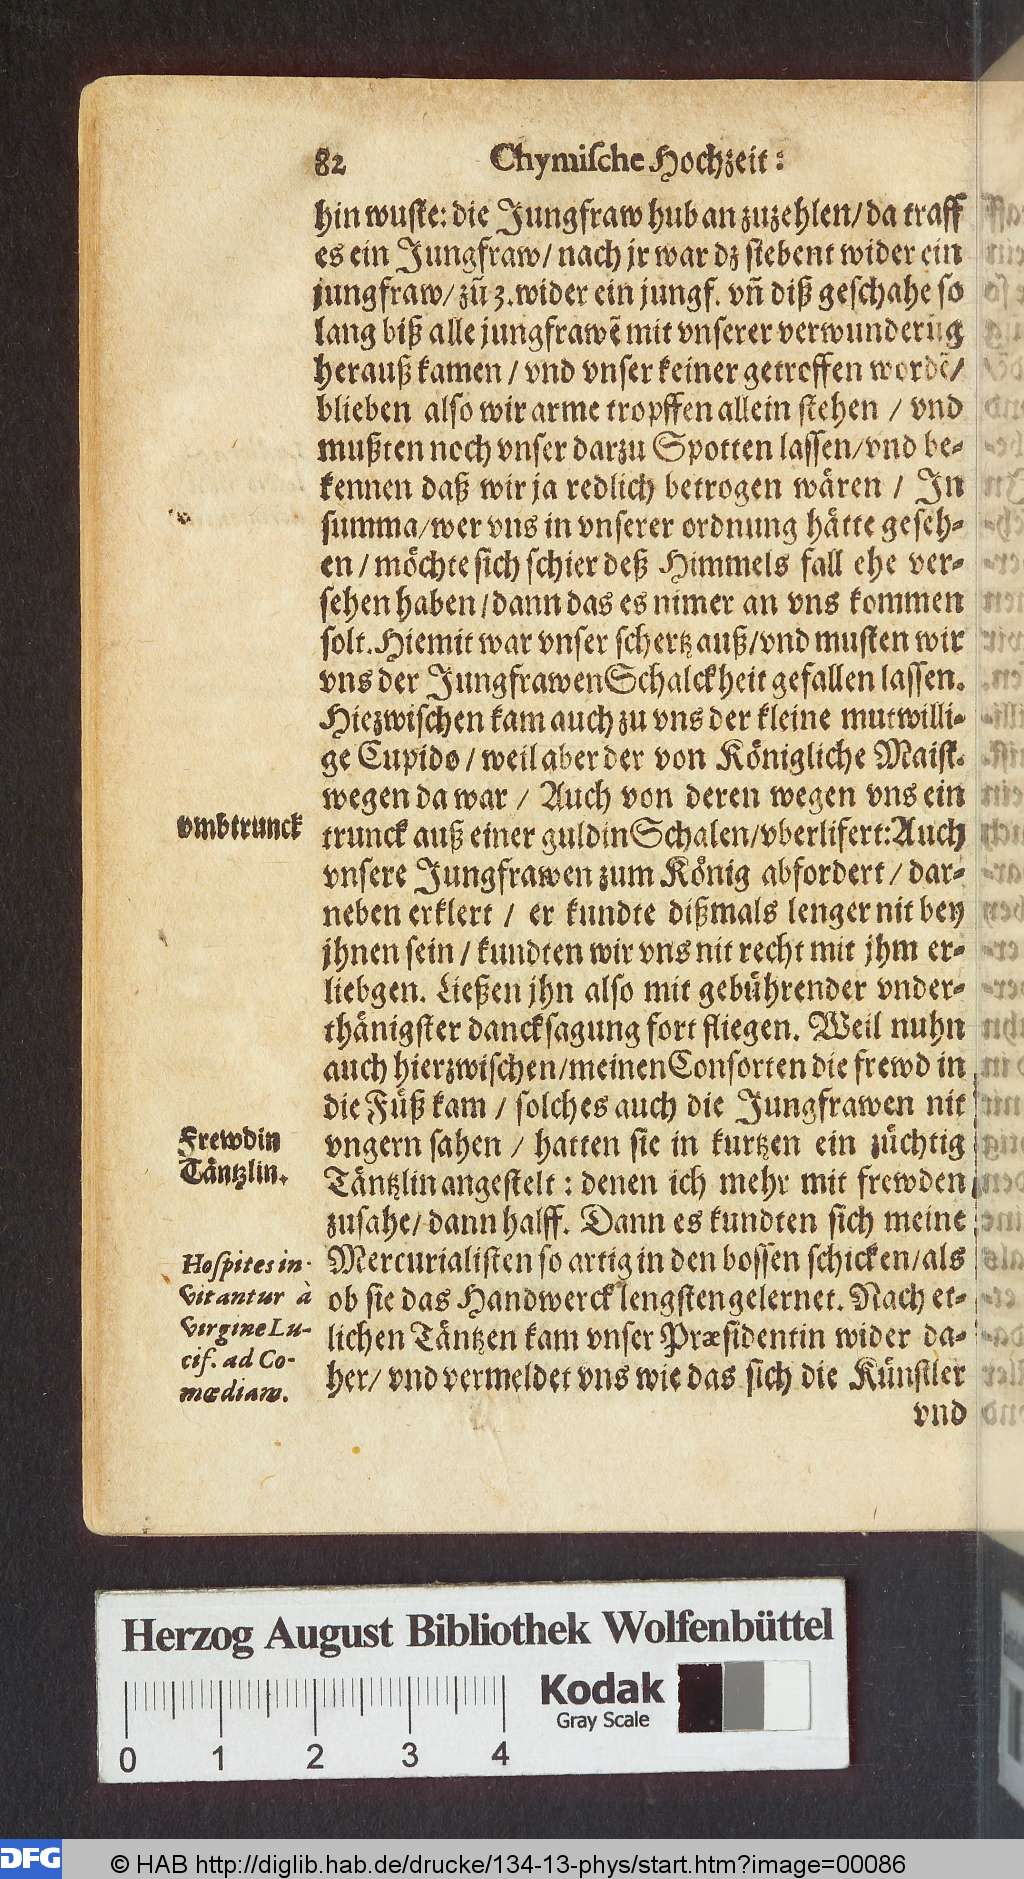 82 Chymische Hochzeit:
hin wuste: die Jungfraw hub an zuzehlen/ da traff
es ein Jungfraw/ nach jr war dz siebent wider ein
jungfraw/ zũ 3. wider ein jungf. vñ diß geschahe so
lang biß alle jungfrawẽ mit vnserer verwunderũg
herauß kamen / vnd vnser keiner getroffen wordẽ/
blieben also wir arme tropffen allein stehen / vnd
mußten noch vnser darzu Spotten lassen/vnd be-
kennen daß wir ja redlich betrogen wären / In
summa/wer vns in vnserer ordnung hätte geseh-
en / möchte sich schier deß Himmels fall ehe ver-
sehen haben/dann das es nimer an vns kommen
solt. Hiemit war vnser schertz auß/vnd musten wir
vns der Jungfrawen Schalckheit gefallen lassen.
Hiezwischen kam auch zu vns der kleine mutwilli-
ge Cupido / weil aber der von Königliche Maist.
vmbtrunck
wegen da war / Auch von deren wegen vns ein
trunck auß einer guldin Schalen/vberlifert: Auch
vnsere Jungfrawen zum König abfordert / dar-
neben erklert / er kundte dißmals lenger nit bey
jhnen sein / kundten wir vns nit recht mit jhm er-
liebgen. Ließen jhn also mit gebührender vnder-
thänigster dancksagung fort fliegen. Weil nuhn
auch hierzwischen/meinen Consorten die frewd in
die Füß kam / solches auch die Jungfrawen nit
Frewdin
Täntzlin.
vngern sahen / hatten sie in kurtzen ein züchtig
Täntzlin angestelt : denen ich mehr mit frewden
zusahe/ dann halff. Dann es kundten sich meine
Hospites in-
vitantur à
virgine Lu-
cif. ad Co-
mœdiam.
Mercurialisten so artig in den bossen schicken/als
ob sie das Handwerck lengsten gelernet. Nach et-
lichen Täntzen kam vnser Præsidentin wider da-
her/ vnd vermeldet vns wie das sich die Künstler
vnd
Herzog August Bibliothek Wolfenbüttel
Kodak
Gray Scale
0 1 2 3 4
DFG
© HAB http://diglib.hab.de/drucke/134-13-phys/start.htm?image=00086